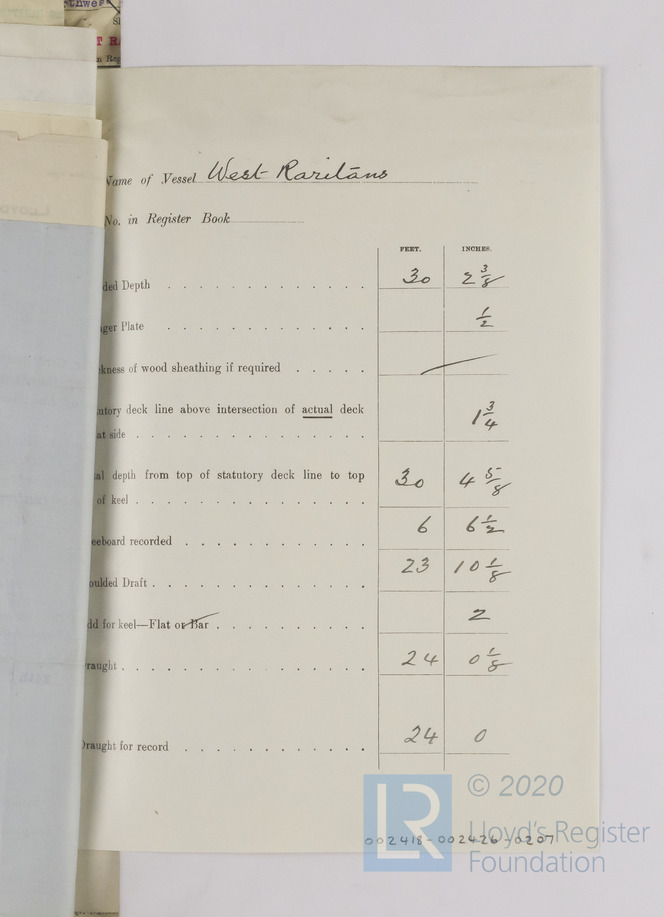 thwest
T RA
n Reg
Name of Vessel West Raritans
No. in Register Book
FEET. INCHES.
ded Depth 30 2 3/8
ger Plate 1/2
kness of wood sheathing if required
utory deck line above intersection of actual deck
at side 1 3/4
al depth from top of statutory deck line to top
of keel 30 4 5/8
eeboard recorded 6 6 1/2
oulded Draft 23 10 1/8
dd for keel—Flat or Bar 2
raught 24 0 1/8
Draught for record 24 0
LR © 2020
Lloyd's Register
Foundation
002418-002426-0207